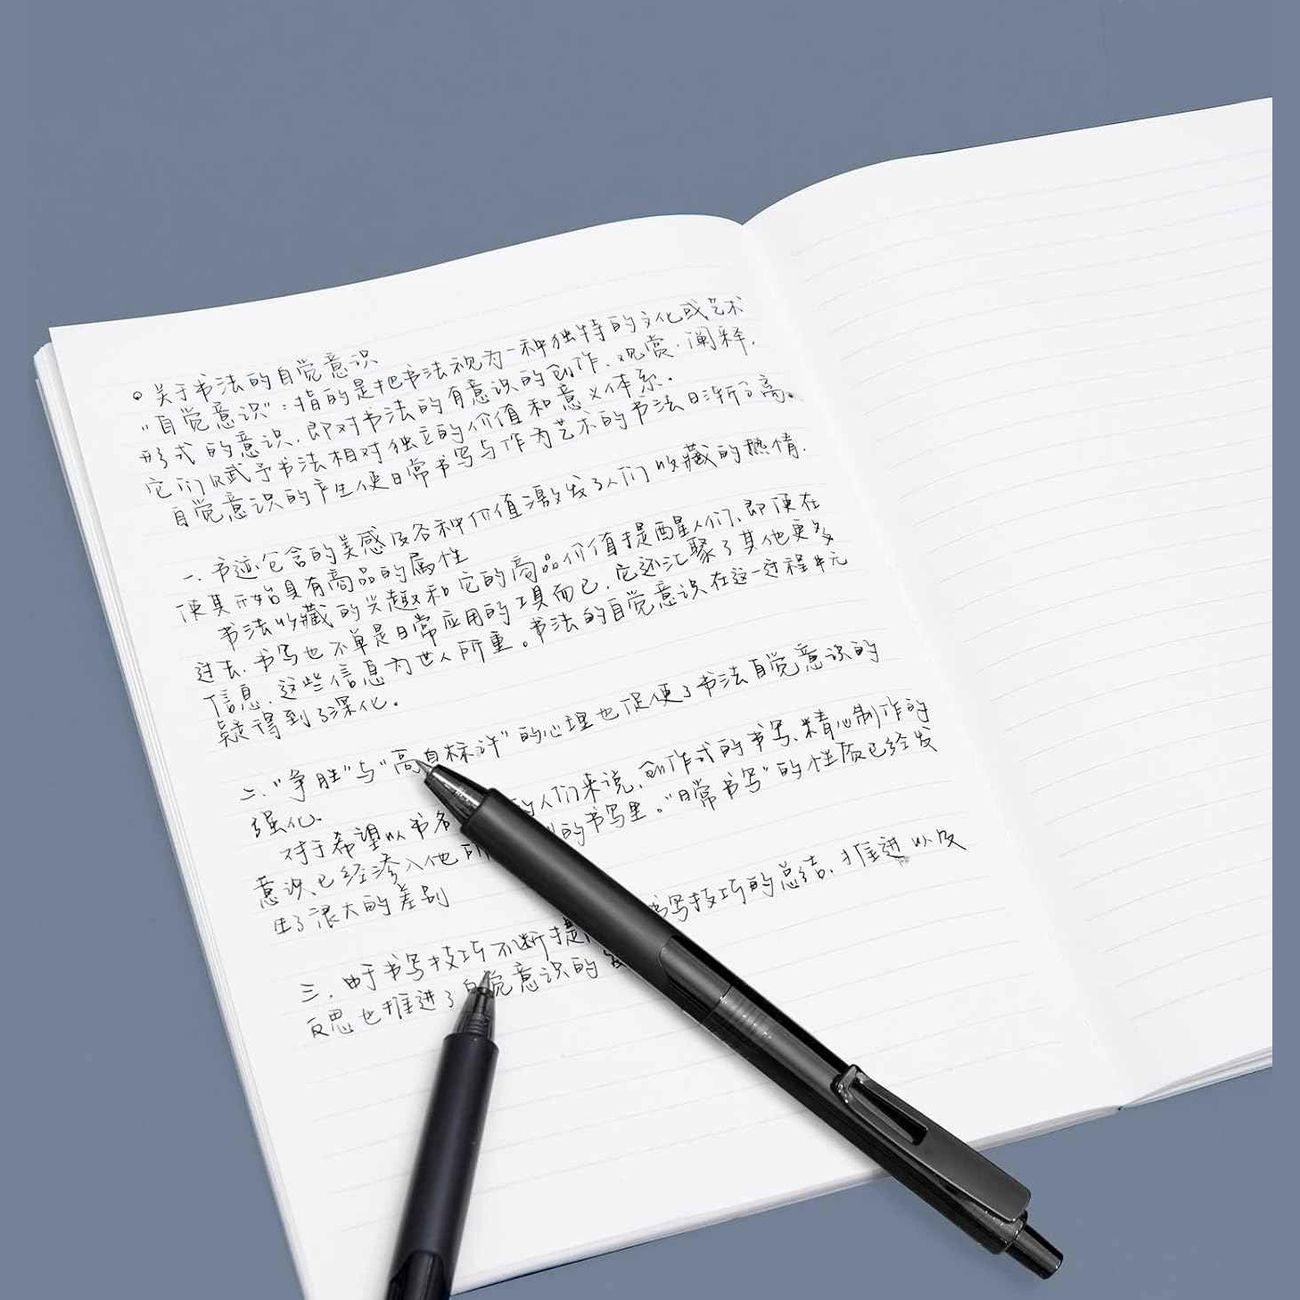 关于书法的自觉意识
“自觉意识”：指的是把书法视为一种独特的文化或艺术
形式的意识，即对书法的有意识的创作、观赏、阐释，
它们赋予书法相对独立的价值和意义体系。
自觉意识的产生使日常书写与作为艺术的书法日渐了高。
一、书迹包含的美感及各种价值激发了人们收藏的热情，
使其开始具有商品的属性
书法收藏的兴趣和它的商品价值提醒人们，即便在
过去，书写也不单是日常应用的工具而已，它还汇聚了其他更多
信息，这些信息为世人所重。书法的自觉意识在这一过程中无
疑得到了深化。
二、“争胜”与“高自标许”的心理也促使了书法自觉意识的
强化。
对于希望以书名 的人们来说，创作式的书写、精心制作的
意识已经渗入他所 的书写里。“日常书写”的性质已经发
生了很大的差别
三、由于书写技巧不断提 书写技巧的总结、推进以及
反思也推进了自觉意识的